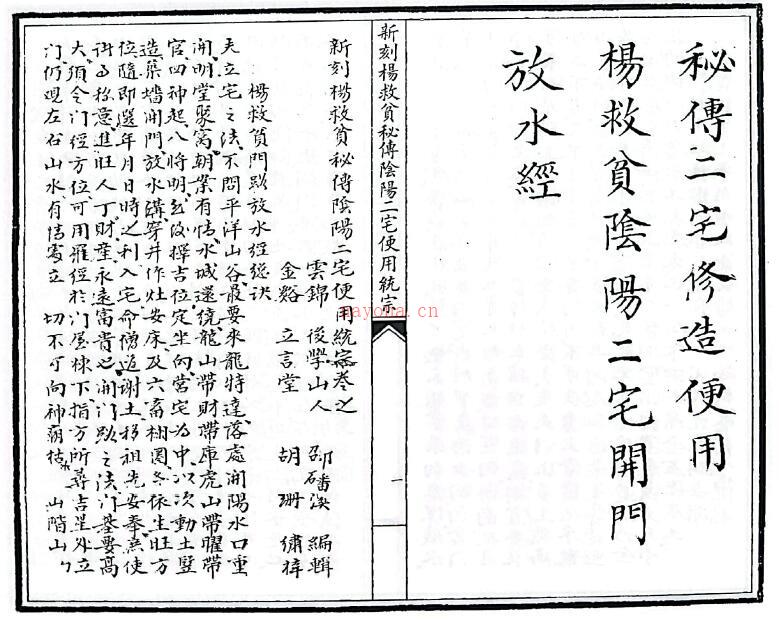 秘傳二宅修造便用
楊救貧陰陽二宅開門
放水經
新刻楊救貧秘傳陰陽二宅便用統宗
一
新刻楊救貧秘傳陰陽二宅便用統宗卷之
雲錦 後學山人 邵磻溪 編輯
金谿 立言堂 胡珊 繡梓
楊救貧門路放水經總訣
夫立宅之法不問平洋山谷最要來龍特達落處開陽水口重
開明堂聚窩朝案有情水城還繞龍山帶財帶庫虎山帶曜帶
官四神起八將明然後擇吉位定坐向當宅為中以次動土豎
造築墻開門放水溝穿井作灶安床及六畜欄圈各依生旺方
位隨即選年月日時之利入宅命僧道謝土移祖先安奉焘使
謀為称意進旺人丁財產永遠富貴也開門路之法門基要高
大須令門經方位可用羅經於門屋棟下指方所尋吉星外立
門仍現左右山水有情處立 切不可向神廟枯 山階山
nayona.cn